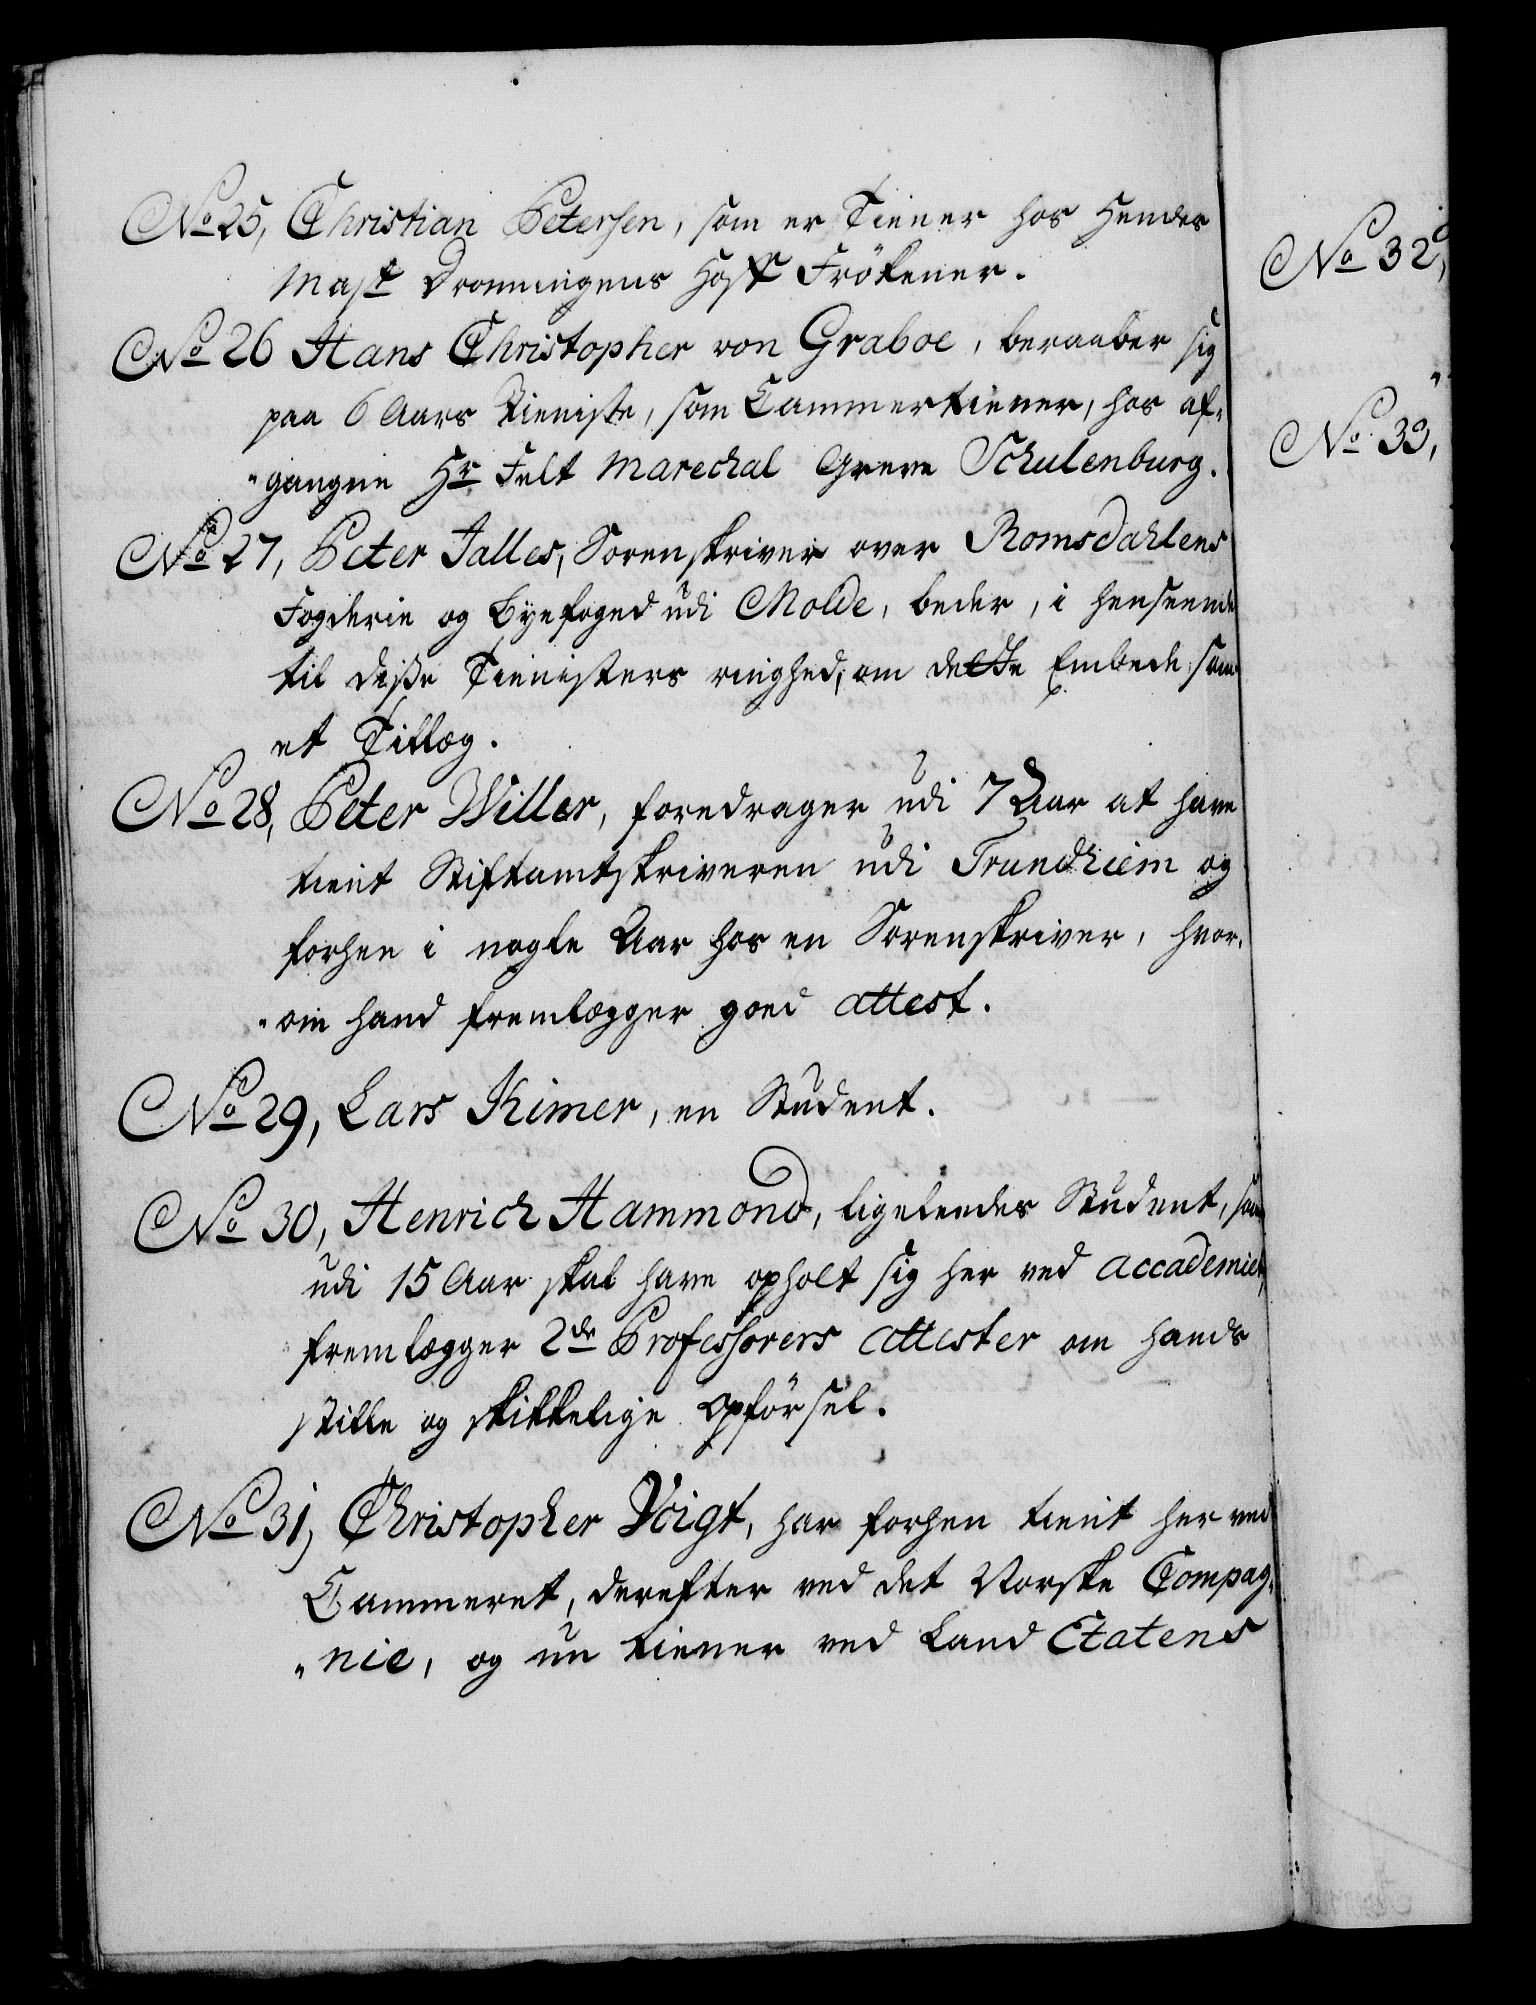 No 25, Christian Petersen, som er Tiener hos Hendes
Majt Dronningens Hoff Frökener.
No 26 Hans Christopher von Graboe, beraaber sig
paa 6 Aars Tieniste, som Cammertiener, hos af-
"gangne Hr Felt Marechal Greve Schulenburg.
No 27, Peter Jalles, Sorenskriver over Romsdahlens
Fogderie og Byefoged udi Molde, beder, i henseende
til disse Tienisters ringhed, om dette Embede som
et Tillæg.
No 28, Peter Willer, foredrager udi 7 Aar at have
tient Stiftamtskriveren udi Trundhiem og
forhen i nogle Aar hos en Sorenskriver, hvor-
"om hand fremlægger goed attest.
No 29, Lars Kimer, en Student.
No 30, Henrich Hammond, ligeleedes Student, som
udi 15 Aar skal have opholt sig her ved accademiet,
fremlægger 2de Professorers attester om hands
stille og skikkelige Opförsel.
No 31, Christopher Voigt, har forhen tient her ved
Cammeret, derefter ved det Norske Compag-
"nie, og nu tiener ved Land Etatens
No 32,
No 33,